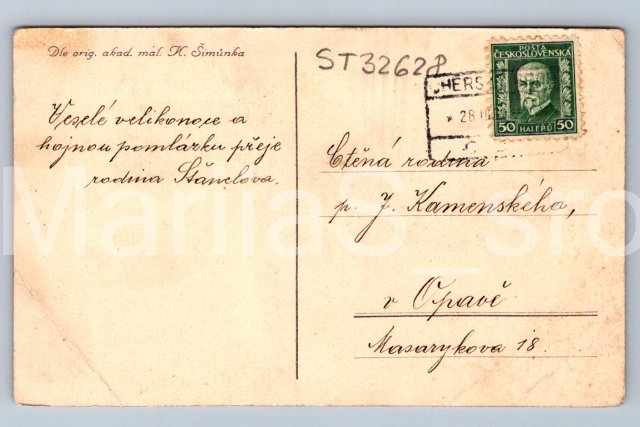 Dle orig. akad. mal. K. Šimůnka
ST32628
POSTA
ČESKOSLOVENSKÁ
50 HALÉŘŮ 50
HERS
* 28 III
Veselé velikonoce a
hojnou pomlázku přeje
rodina Štănelova.
Ctěná rodina
p. J. Kamenského,
v Opavě
Masarykova 18.